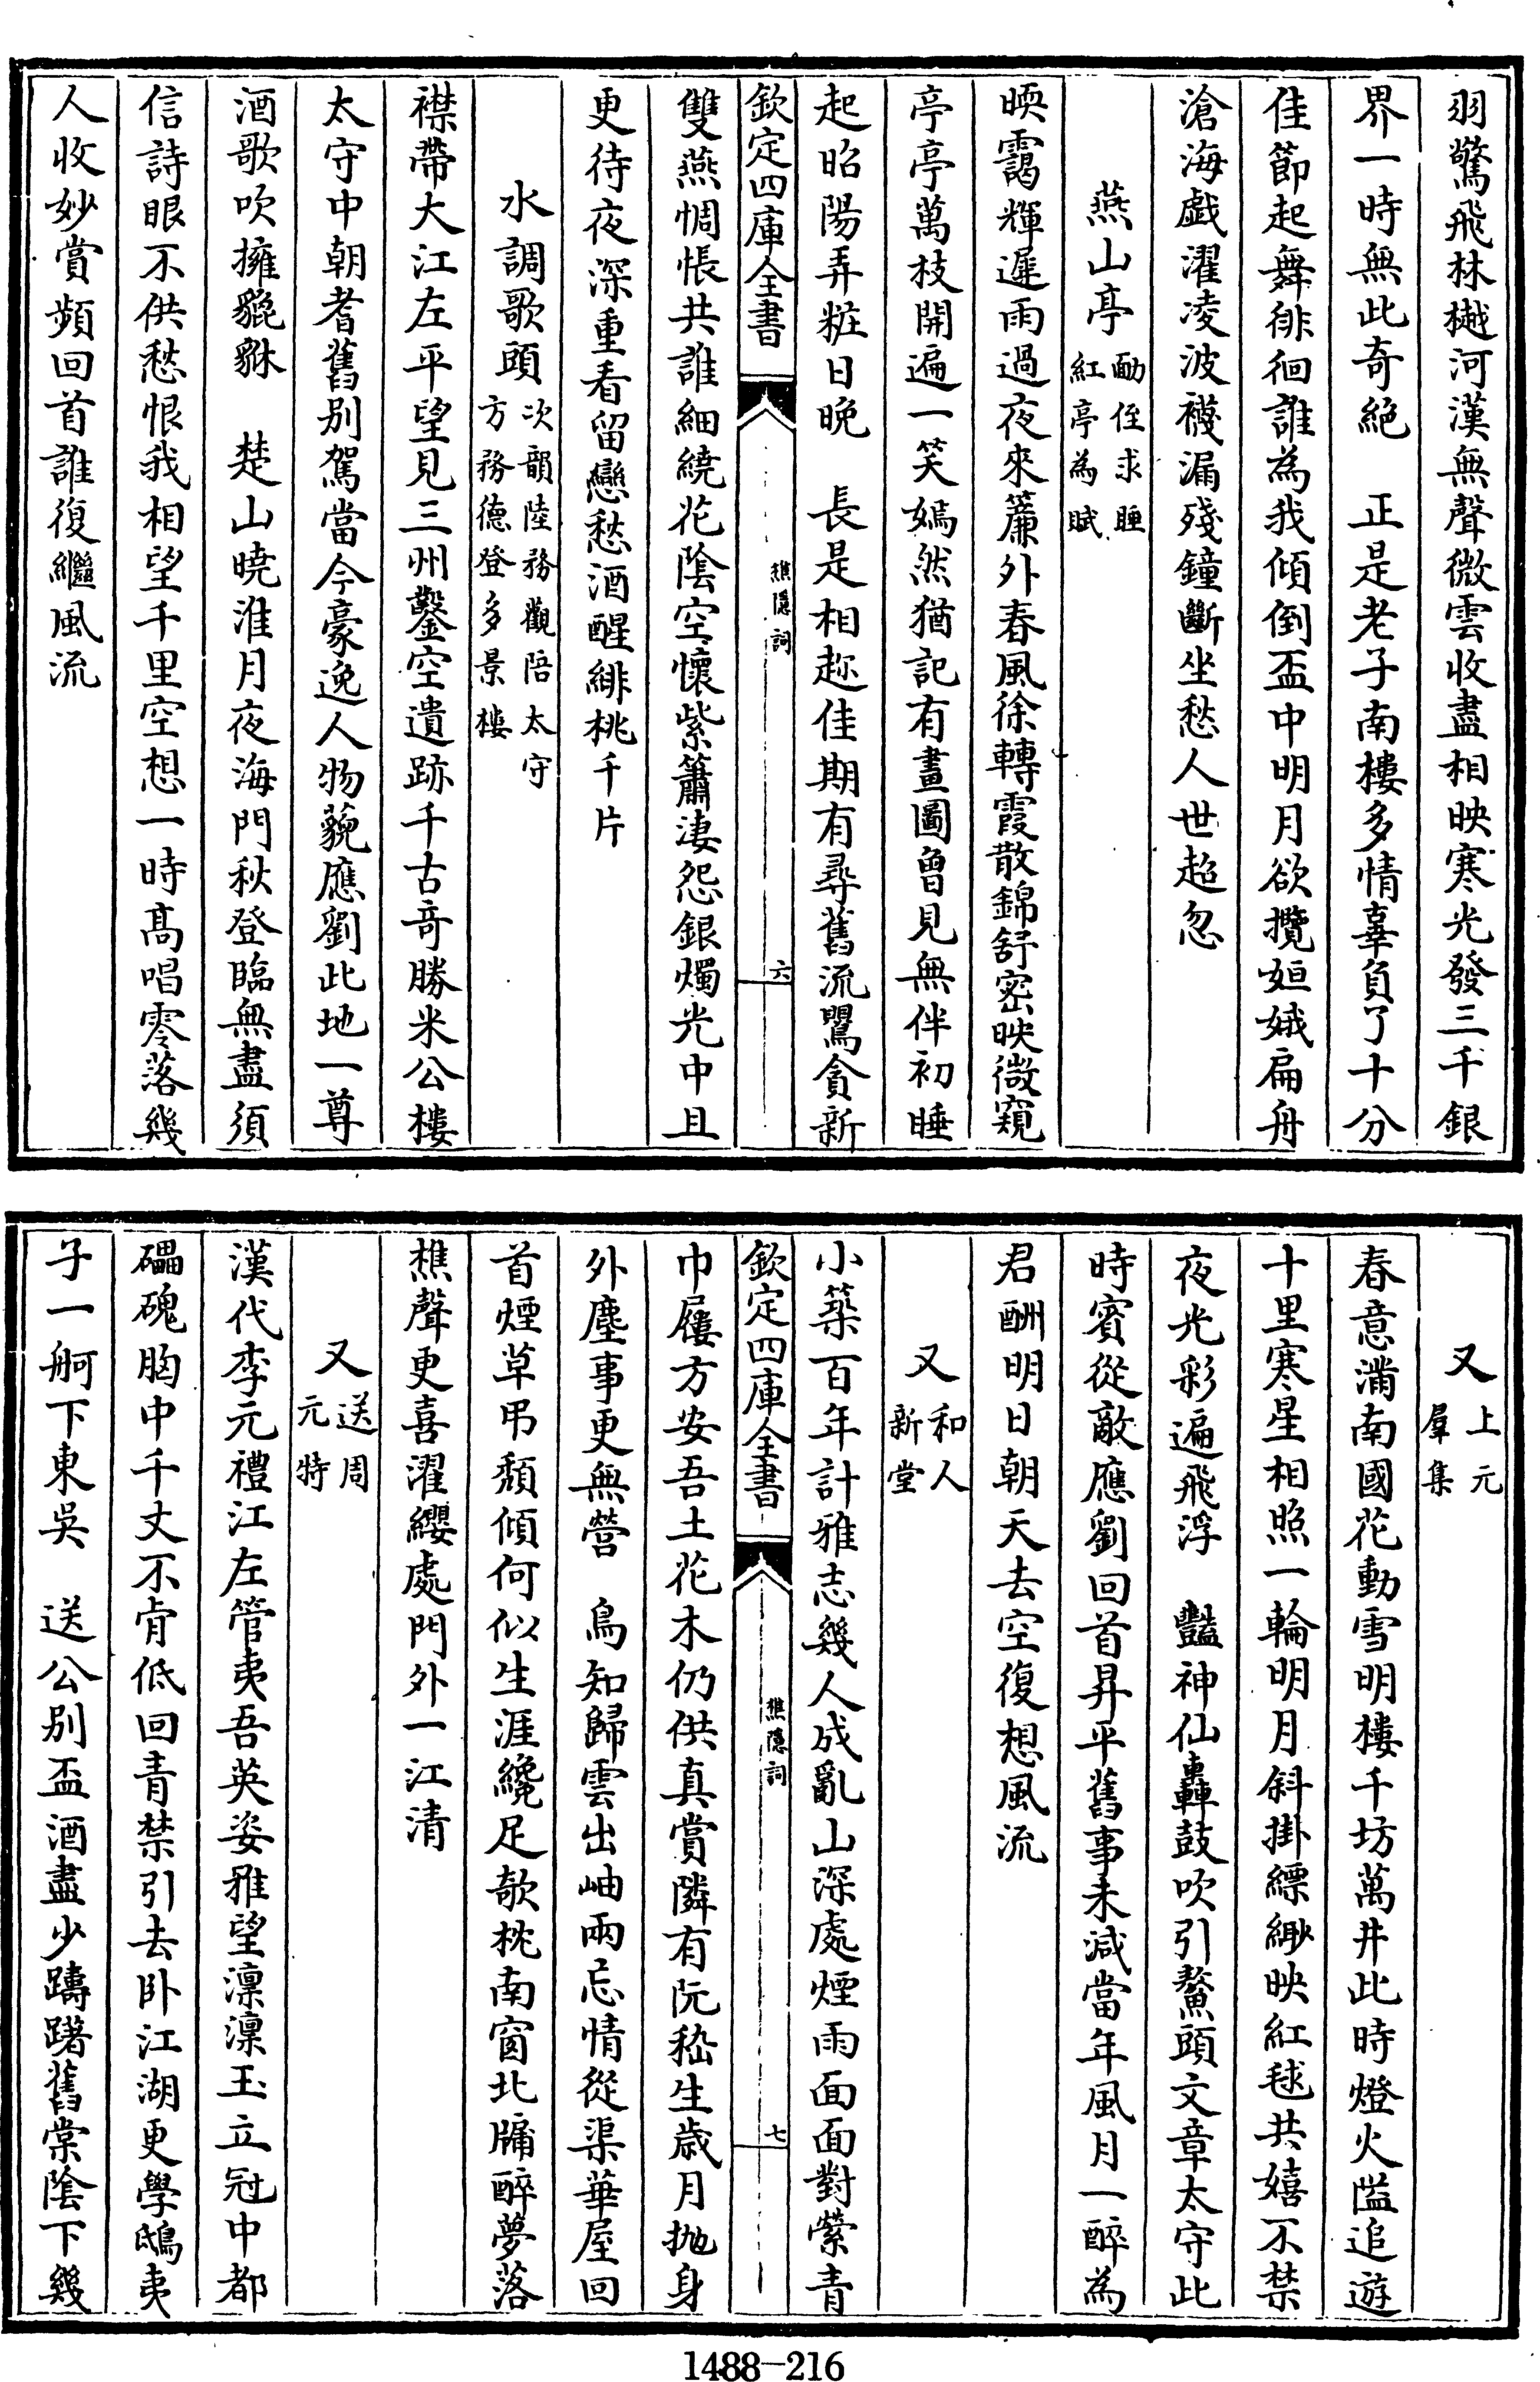 羽驚飛林樾河漢無聲微雲收盡相映寒光發三千銀
界一時無此奇絕　正是老子南樓多情辜負了十分
佳節起舞徘徊誰為我傾倒盃中明月欲攬姮娥扁舟
滄海戲濯凌波襪漏殘鐘斷坐愁人世超忽
燕山亭
勔侄求睡
紅亭為賦
暎靄輝遲雨過夜來簾外春風徐轉霞散錦舒密映微窺
亭亭萬枝開遍一笑嫣然猶記有畫圖曾見無伴初睡
起昭陽弄粧日晚　長是相趂佳期有尋舊流鸎貪新
欽定四庫全書
樵隱詞
六
雙燕惆悵共誰細繞花陰空懷紫簫淒怨銀燭光中且
更待夜深重看留戀愁酒醒緋桃千片
水調歌頭
次韻陸務觀陪太守
方務德登多景樓
襟帶大江左平望見三州鑿空遺跡千古奇勝米公樓
太守中朝耆舊別駕當今豪逸人物藐應劉此地一尊
酒歌吹擁貔貅　楚山曉淮月夜海門秋登臨無盡須
信詩眼不供愁恨我相望千里空想一時高唱零落幾
人收妙賞頻回首誰復繼風流
又
上元
羣集
春意滿南國花動雪明樓千坊萬井此時燈火隘追遊
十里寒星相照一輪明月斜掛縹緲映紅毬共嬉不禁
夜光彩遍飛浮　豔神仙轟鼓吹引鰲頭文章太守此
時賓從敵應劉回首昇平舊事未減當年風月一醉為
君酬明日朝天去空復想風流
又
和人
新堂
小築百年計雅志幾人成亂山深處煙雨面面對縈青
欽定四庫全書
樵隱詞
七
巾屨方安吾土花木仍供真賞隣有阮嵇生歲月拋身
外塵事更無營　鳥知歸雲出岫兩忘情從渠華屋回
首煙草弔頹傾何似生涯纔足欹枕南窗北牖醉夢落
樵聲更喜濯纓處門外一江清
又
送周
元特
漢代李元禮江左管夷吾英姿雅望凜凜玉立冠中都
礧磈胸中千丈不肯低回青禁引去卧江湖更學鴟夷
子一舸下東吳　送公别盃酒盡少躊躇舊棠陰下幾
1488—216